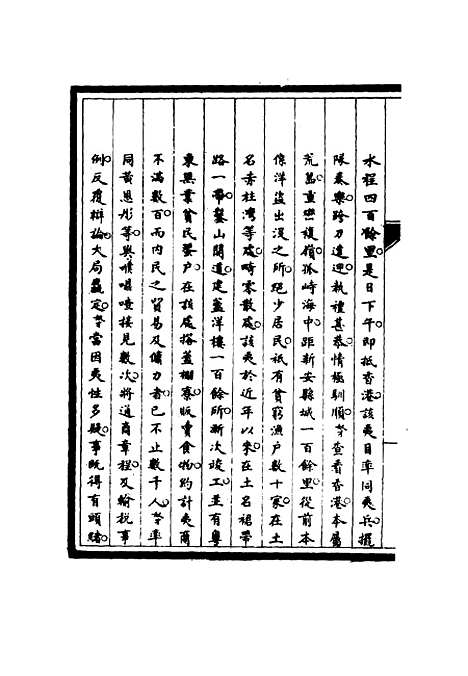 水程四百餘里是日下午即抵香港該夷目率同夷兵擺
隊奏樂跨刀遠迎執禮甚恭情極馴順等查看香港本屬
荒島重巒複嶺孤峙海中距新安縣城一百餘里從前本
係洋盜出沒之所絕少居民祇有貧窮漁戶數十家在土
名赤柱灣等處時零散處該夷於近年以來在土名裙帶
路一帶鑿山開道建蓋洋樓一百餘所漸次竣工並有粵
東無業貧民蜑戶在該處搭蓋棚寮販賣食物約計夷商
不滿數百而內民之貿易及傭力者已不止數千人等率
同黃恩彤等與噗嘓喳接見數次將通商章程及輸稅事
例反覆辯論大局粗定等當因夷性多疑事既得有頭緒